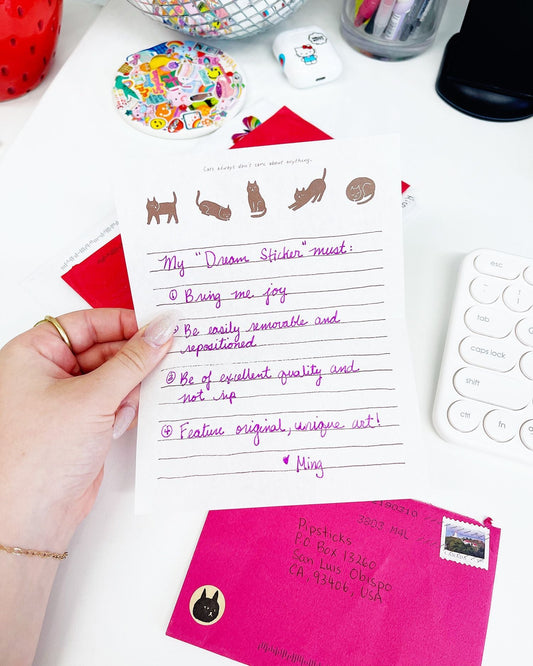 Cats always don't care about anything.
My "Dream Sticker" must:
① Bring me joy
② Be easily removable and
repositioned
③ Be of excellent quality and
not rip
④ Feature original, unique art!
♥ Ming
Pipsticks
P.O Box 13260
San Luis Obispo
CA, 93406, USA
esc
tab
caps lock
shift
ctrl
fn